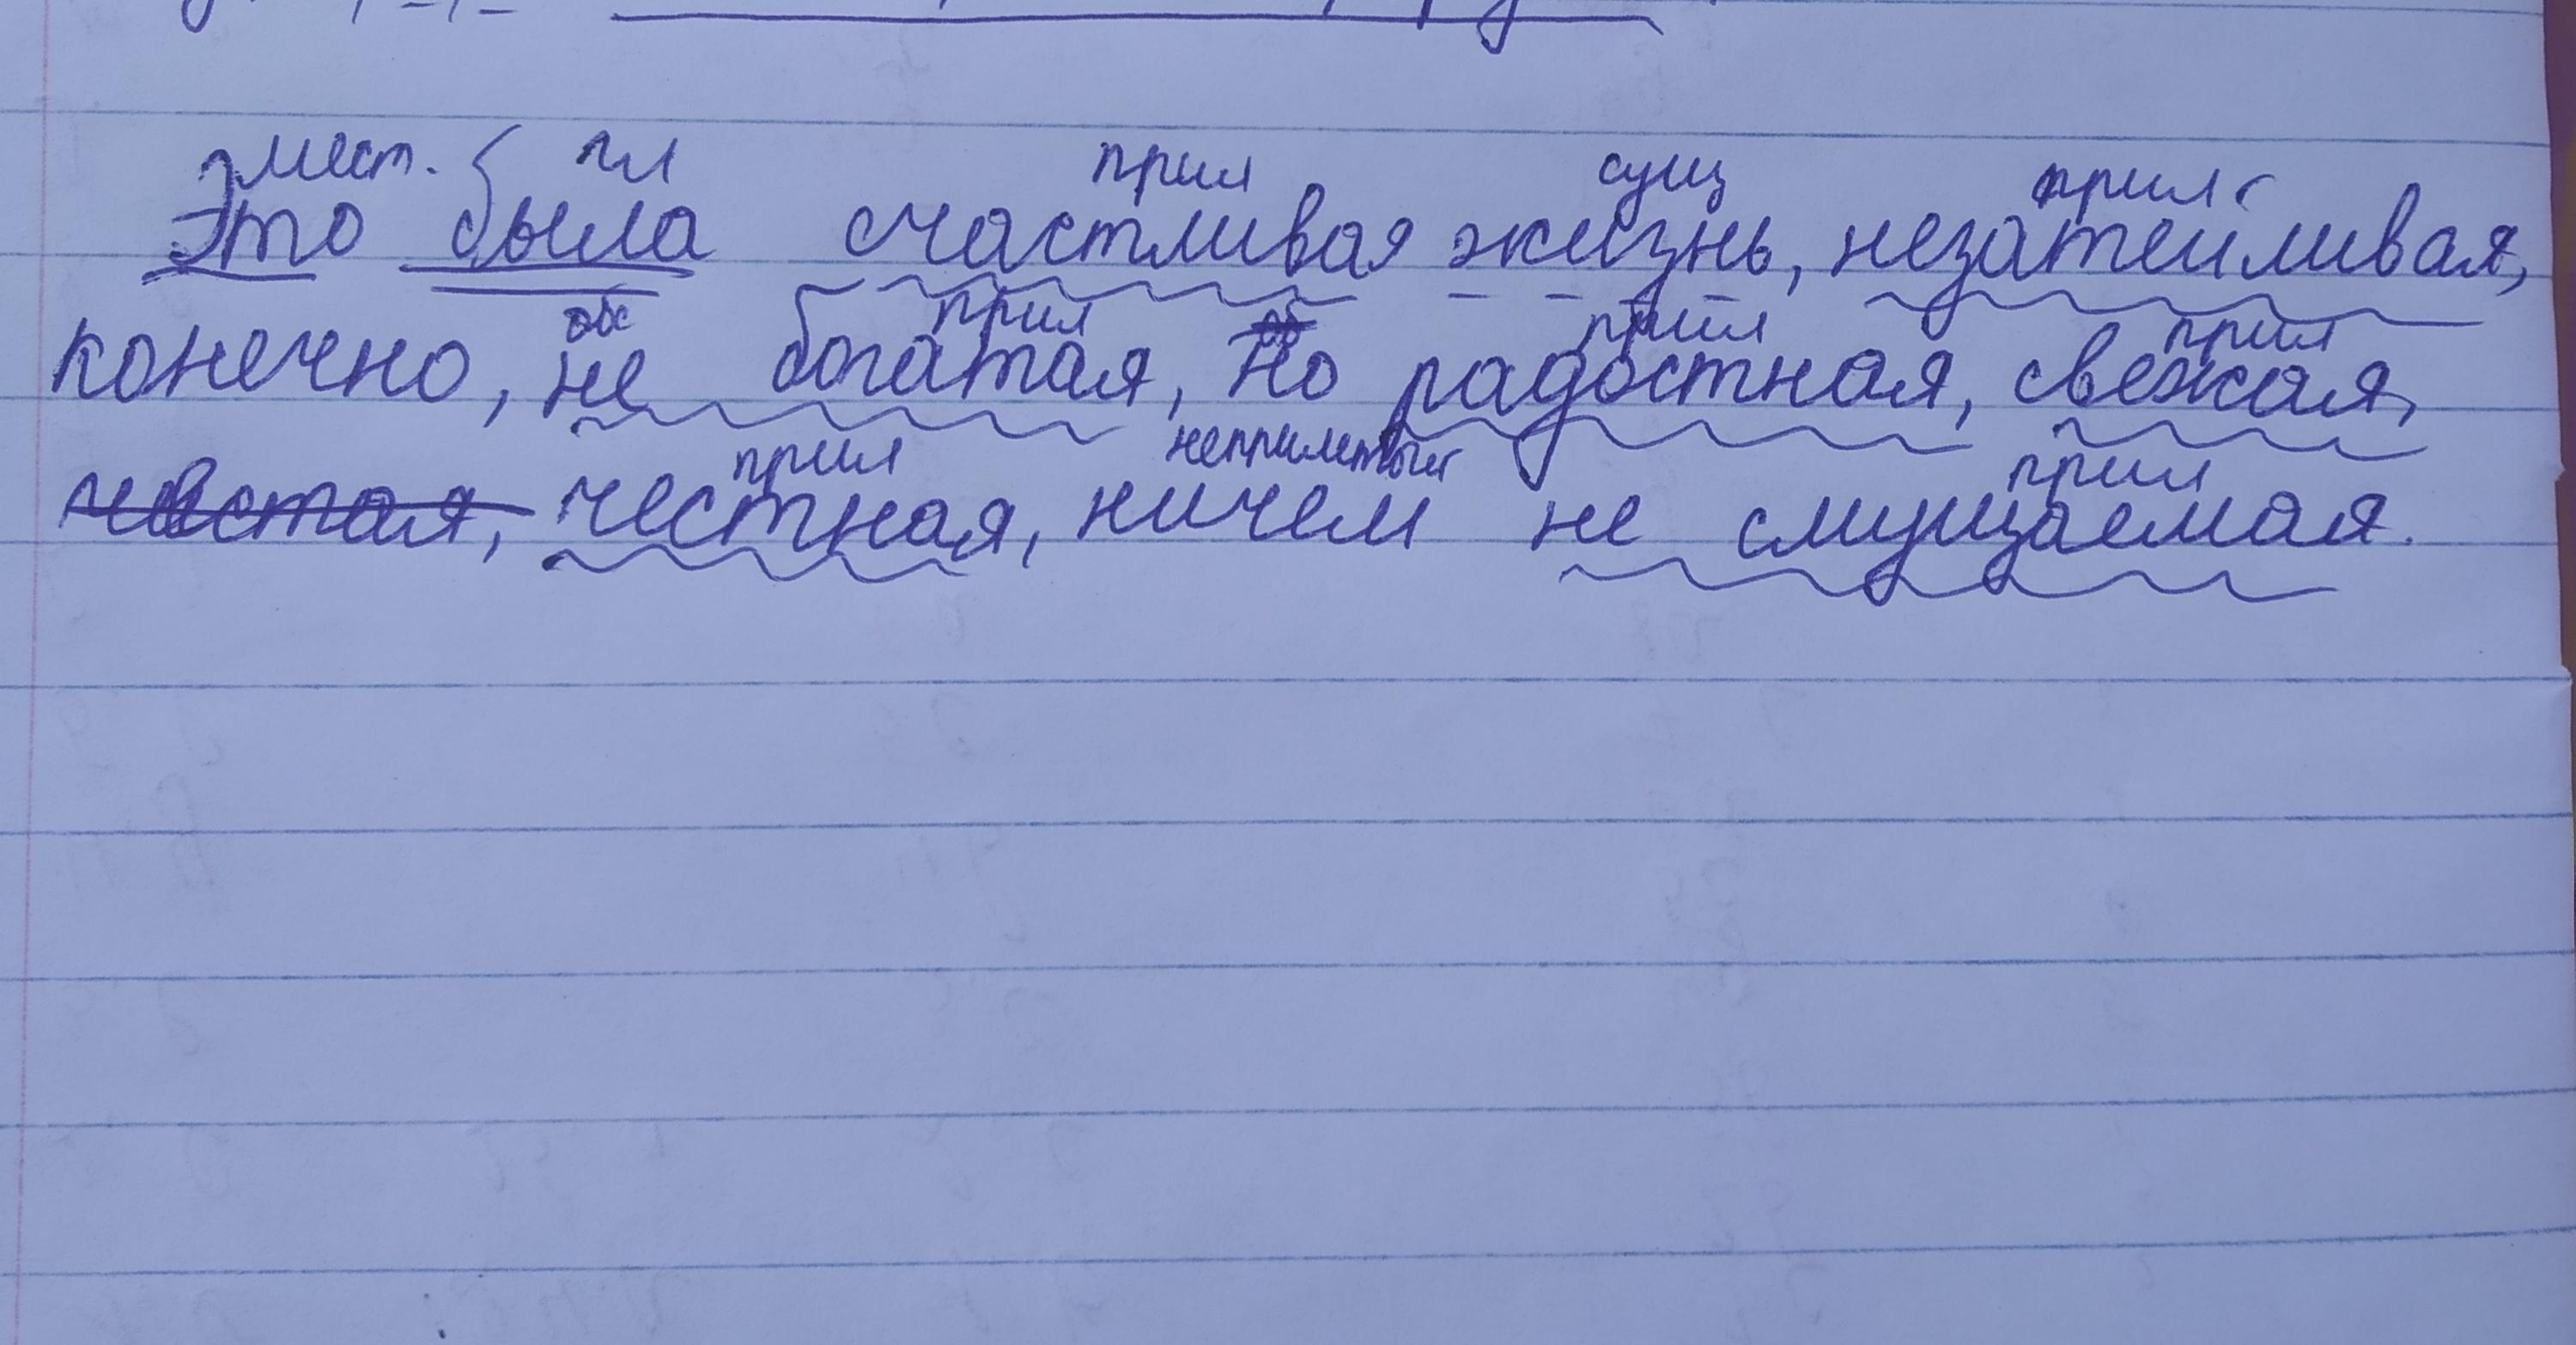 мест. гл прил сущ прил
Это была счастливая жизнь, незатеиливая,
прил прил прил
конечно, не богатая, но радостная, свежая,
прил прил
чистая, честная, ничем не смущаемая.